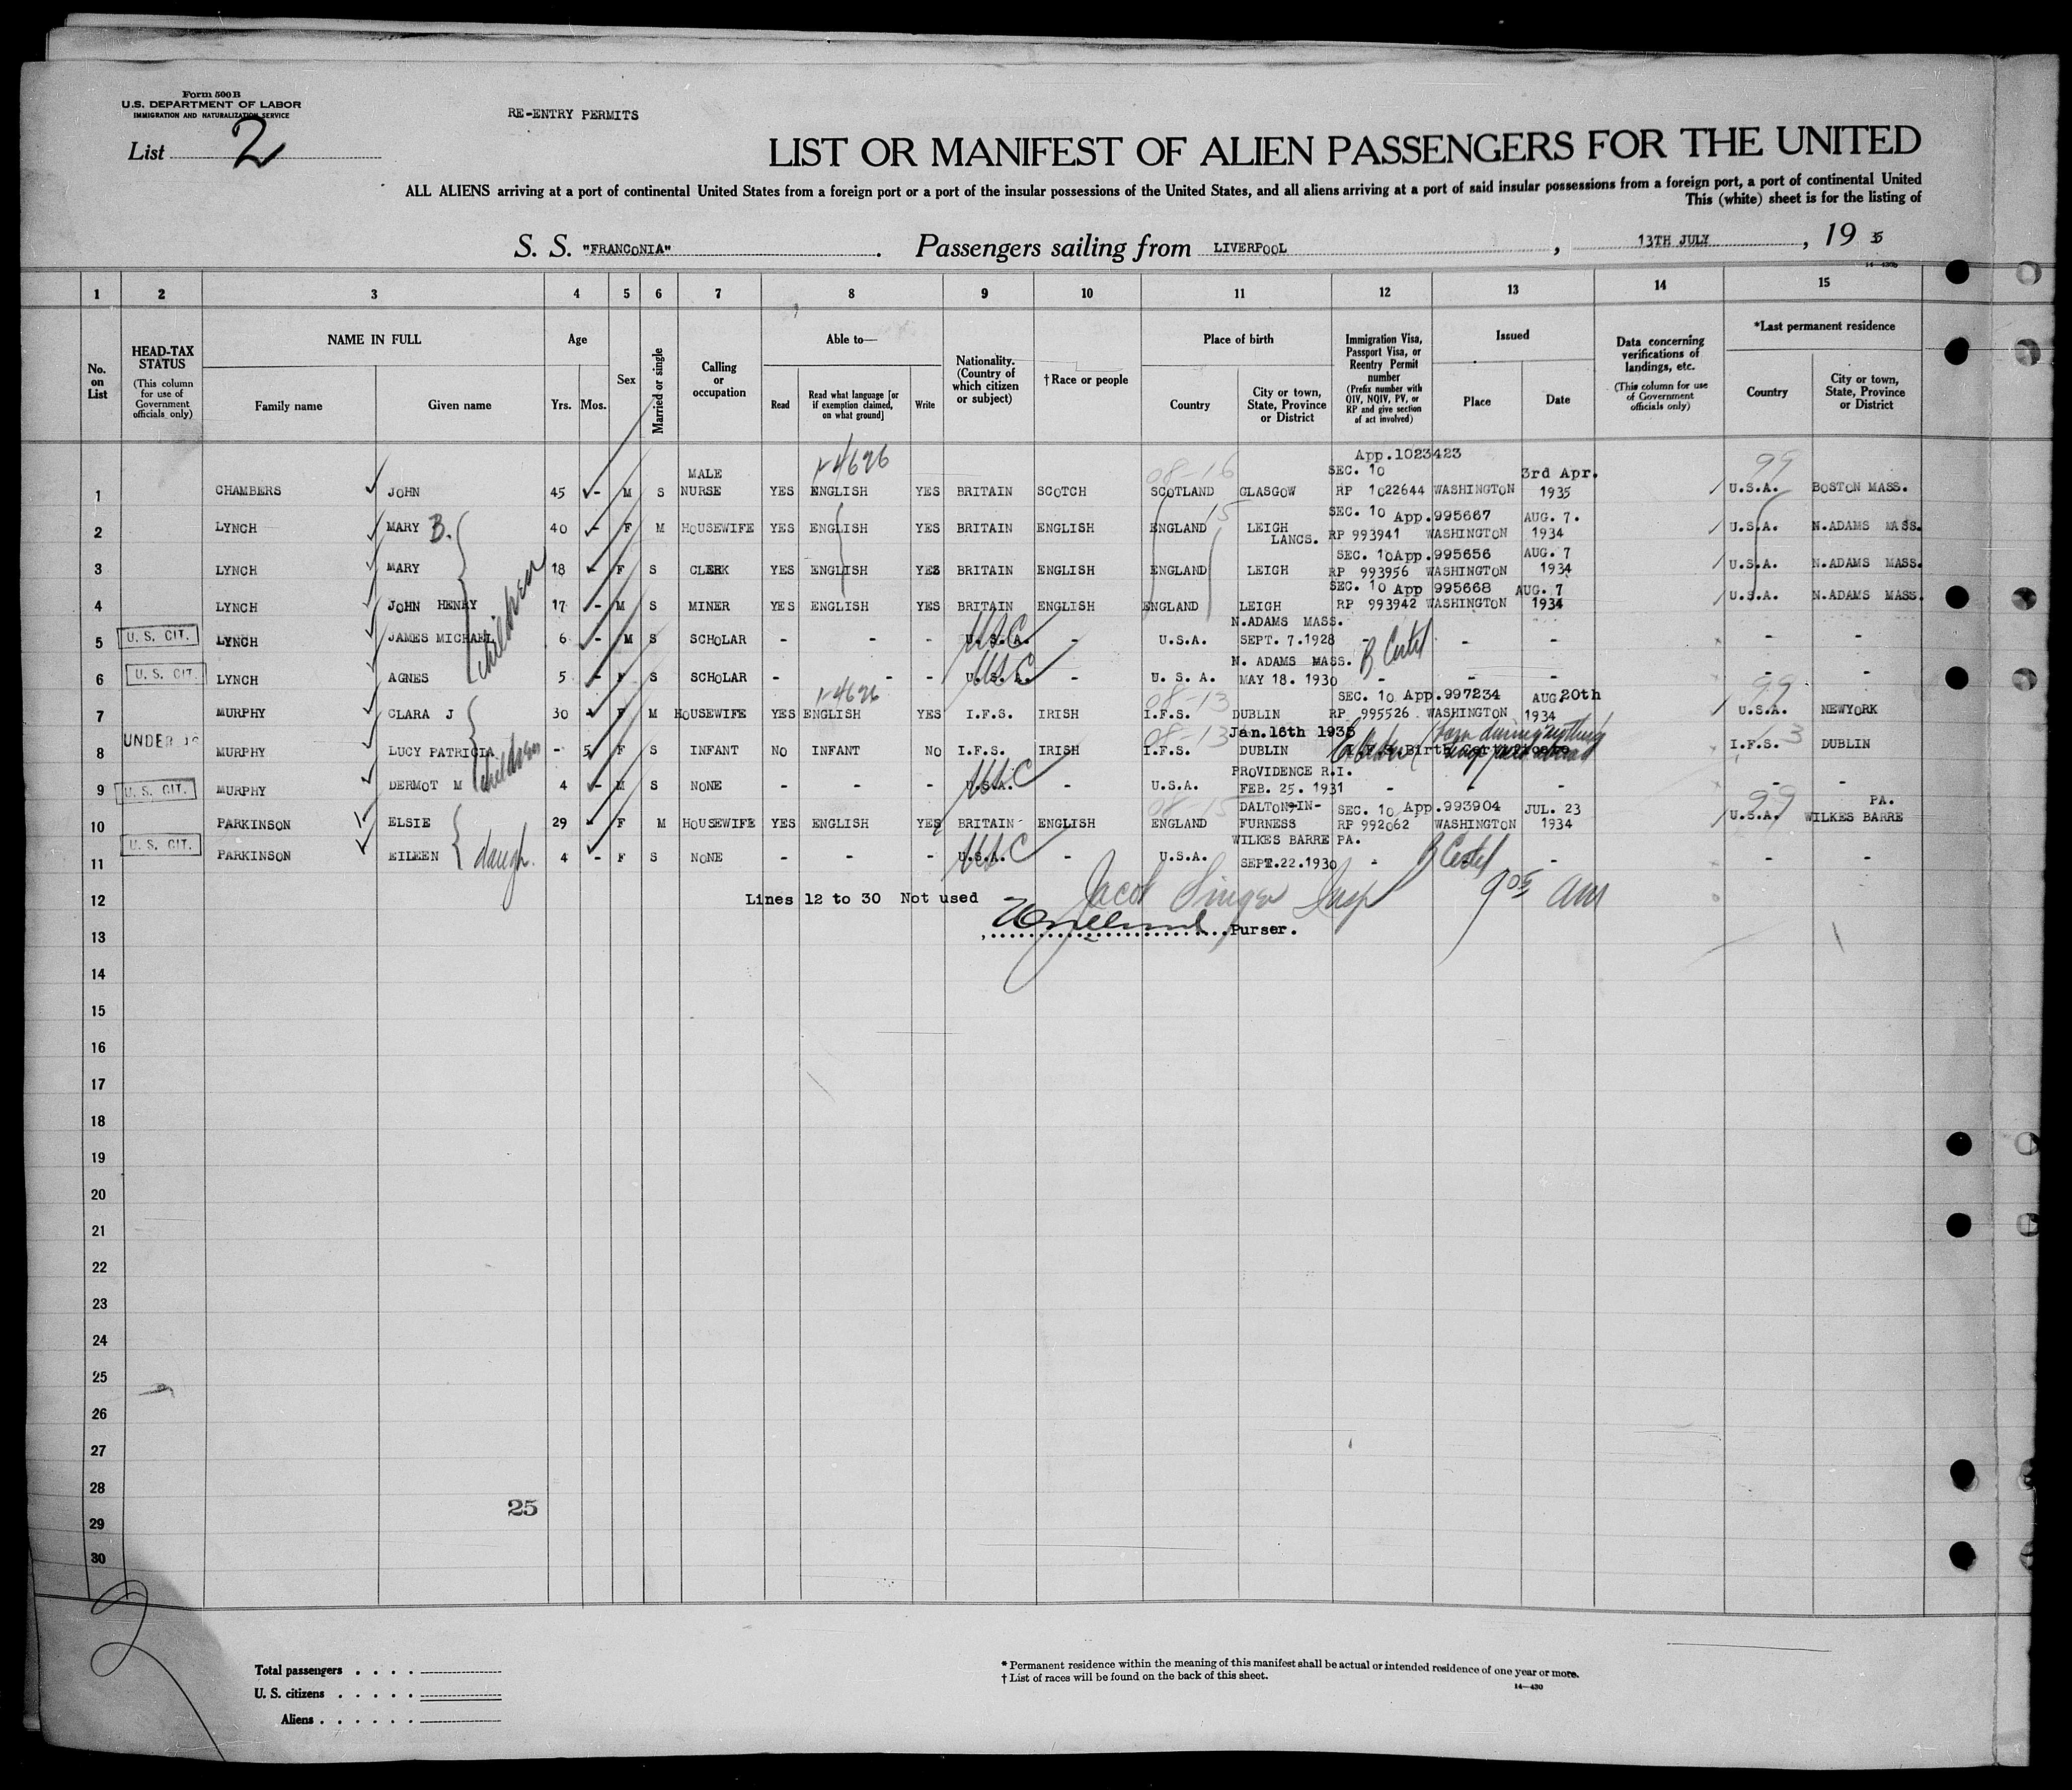 Form 500B
U.S. DEPARTMENT OF LABOR
IMMIGRATION AND NATURALIZATION SERVICE
RE-ENTRY PERMITS
List 2
LIST OR MANIFEST OF ALIEN PASSENGERS FOR THE UNITED
ALL ALIENS arriving at a port of continental United States from a foreign port or a port of the insular possessions of the United States, and all aliens arriving at a port of said insular possessions from a foreign port, a port of continental United
This (white) sheet is for the listing of
S. S. "FRANCONIA". Passengers sailing from LIVERPOOL, 13TH JULY, 19 35
14-430b
1 2 3 4 5 6 7 8 9 10 11 12 13 14 15
No. on List
HEAD-TAX STATUS (This column for use of Government officials only)
NAME IN FULL
Family name Given name
Age
Yrs. Mos.
Sex
Married or single
Calling or occupation
Able to—
Read Read what language [or if exemption claimed, on what ground] Write
Nationality. (Country of which citizen or subject)
†Race or people
Place of birth
Country City or town, State, Province or District
Immigration Visa, Passport Visa, or Reentry Permit number (Prefix number with QIV, NQIV, PV, or RP and give section of act involved)
Issued
Place Date
Data concerning verifications of landings, etc. (This column for use of Government officials only)
*Last permanent residence
Country City or town, State, Province or District
4696 08-16 App.1023423 99
MALE SEC. 10 3rd Apr.
1 CHAMBERS JOHN 45 - M S NURSE YES ENGLISH YES BRITAIN SCOTCH SCOTLAND GLASGOW RP 1022644 WASHINGTON 1935 U.S.A. BOSTON MASS.
15 SEC. 10 App.995667 AUG. 7.
2 LYNCH MARY B. 40 - F M HOUSEWIFE YES ENGLISH YES BRITAIN ENGLISH ENGLAND LEIGH LANCS. RP 993941 WASHINGTON 1934 U.S.A. N.ADAMS MASS.
SEC. 10App.995656 AUG. 7
3 LYNCH MARY 18 - F S CLERK YES ENGLISH YES BRITAIN ENGLISH ENGLAND LEIGH RP 993956 WASHINGTON 1934 U.S.A. N.ADAMS MASS.
children
SEC. 10 App 995668 AUG. 7
4 LYNCH JOHN HENRY 17 - M S MINER YES ENGLISH YES BRITAIN ENGLISH ENGLAND LEIGH RP 993942 WASHINGTON 1934 U.S.A. N.ADAMS MASS.
N.ADAMS MASS.
5 U. S. CIT. LYNCH JAMES MICHAEL 6 - M S SCHOLAR - - - U.S.A. USC - U.S.A. SEPT. 7.1928 - - - - -
N. ADAMS MASS.
6 U. S. CIT. LYNCH AGNES 5 - F S SCHOLAR - - - U.S.A. USC - U. S. A. MAY 18. 1930 - - - - -
4696 08-13 SEC. 10 App.997234 AUG.20th 99
7 MURPHY CLARA J 30 - F M HOUSEWIFE YES ENGLISH YES I.F.S. IRISH I.F.S. DUBLIN RP 995526 WASHINGTON 1934 U.S.A. NEWYORK
children
08-13 Jan.16th 1935
8 UNDER 16 MURPHY LUCY PATRICIA - 5 F S INFANT NO INFANT NO I.F.S. IRISH I.F.S. DUBLIN I.F.S. Birth Certificate I.F.S. DUBLIN
PROVIDENCE R.I.
9 U. S. CIT. MURPHY DERMOT M 4 - M S NONE - - - U.S.A. USC - U.S.A. FEB. 25. 1931 - - - - -
08-15 DALTON-IN- SEC. 10 App.993904 JUL. 23 99 PA.
10 PARKINSON ELSIE 29 - F M HOUSEWIFE YES ENGLISH YES BRITAIN ENGLISH ENGLAND FURNESS RP 992062 WASHINGTON 1934 U.S.A. WILKES BARRE
WILKES BARRE PA.
11 U. S. CIT. PARKINSON EILEEN daugh. 4 - F S NONE - - - U.S.A. USC - U.S.A. SEPT.22.1930 - - - -
12 Lines 12 to 30 Not used Jacob Singer Insp 9 05 AM
13 Purser.
14
15
16
17
18
19
20
21
22
23
24
25
26
27
28
25
29
30
2
Total passengers
U. S. citizens
Aliens
* Permanent residence within the meaning of this manifest shall be actual or intended residence of one year or more.
† List of races will be found on the back of this sheet.
14—430